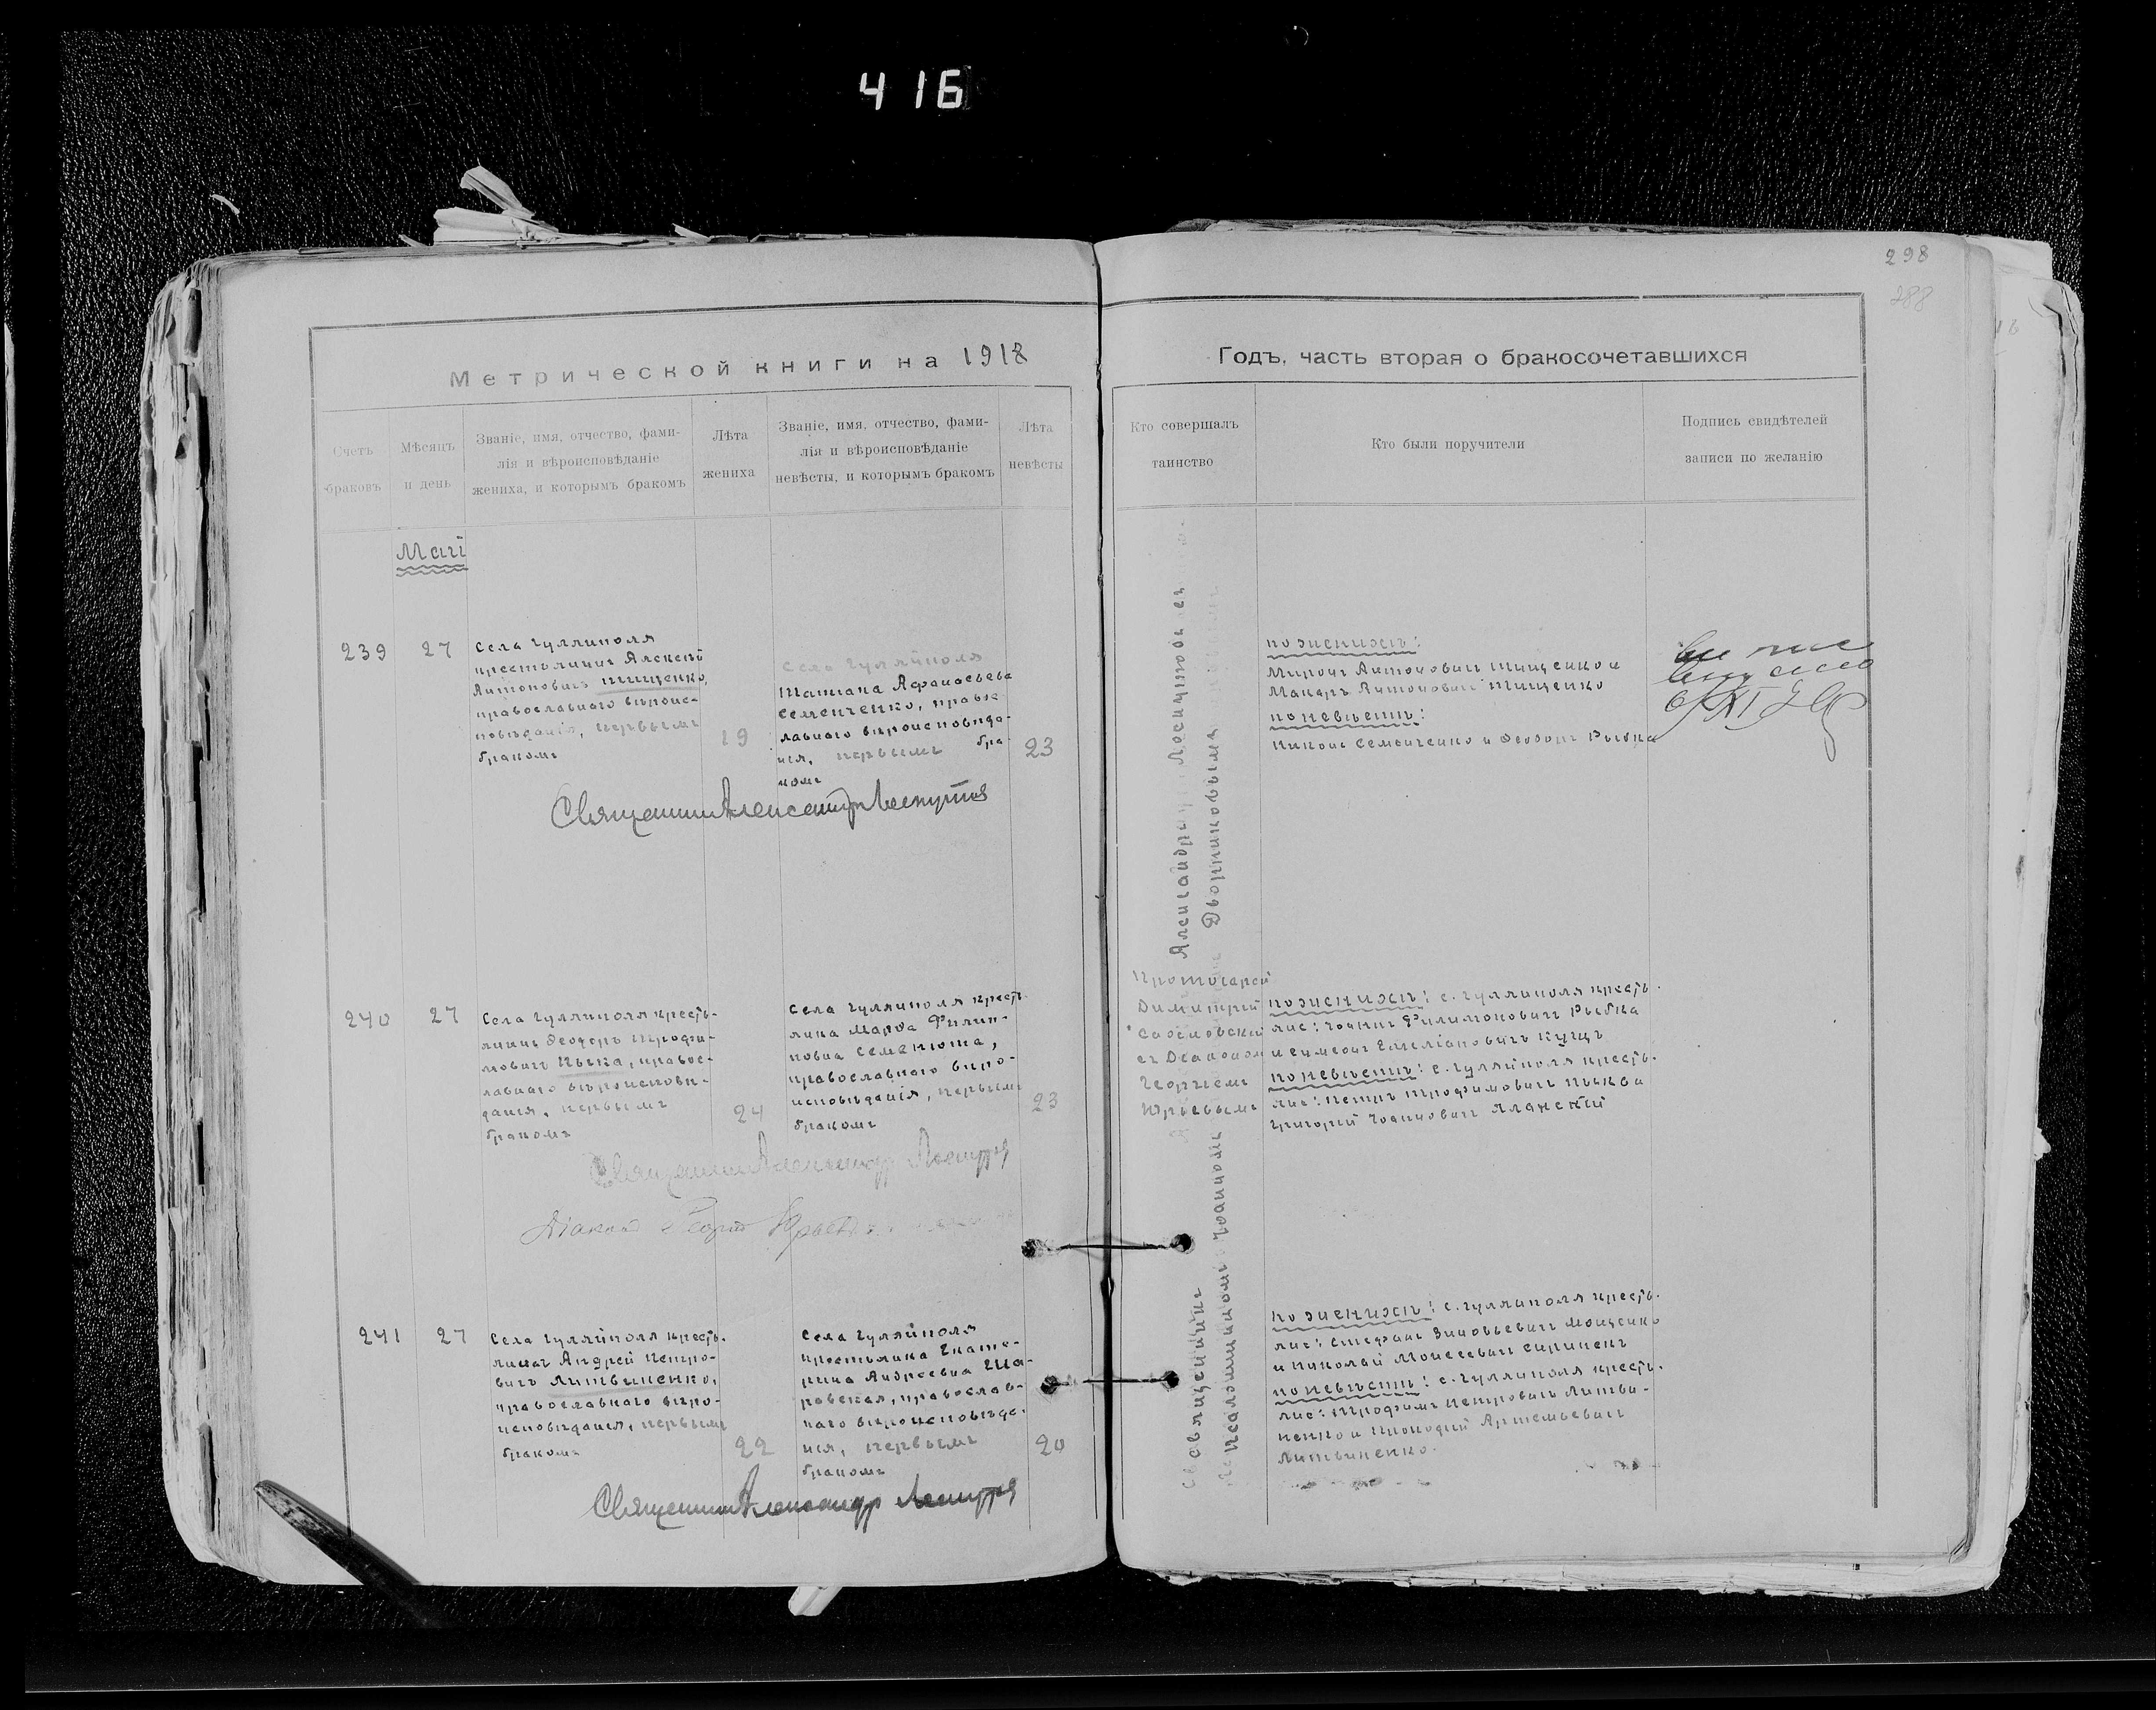 416
298
288
Метрической книги на 1918
Годъ, часть вторая о бракосочетавшихся
Счетъ браковъ
Мѣсяцъ и день
Званіе, имя, отчество, фами-
лія и вѣроисповѣданіе
жениха, и которымъ бракомъ
Лѣта жениха
Званіе, имя, отчество, фами-
лія и вѣроисповѣданіе
невѣсты, и которымъ бракомъ
Лѣта невѣсты
Кто совершалъ
таинство
Кто были поручители
Подпись свидѣтелей
записи по желанію
Май
239
27
Села Гуляйполя
крестьянинъ Алексѣй
Антоновичъ Тищенко,
православнаго вѣроис-
повѣданія, первымъ
бракомъ
19
Села Гуляйполя
Татіана Афанасьева
Семенченко, правос
лавнаго вѣроисповѣда-
нія, первымъ бра-
комъ
23
Священникъ Александръ
по женихѣ:
Миронъ Антоновичъ Тищенко и
Макаръ Антоновичъ Тищенко
по невѣстѣ:
Никонъ Семенченко и Феодоръ Рыбка
240
27
Села Гуляйполя кресть-
янинъ Феодоръ Трофи-
мовичъ Пыха, правос-
лавнаго вѣроисповѣ-
данія, первымъ
бракомъ
24
Села Гуляйполя кресть
янка Марфа Филип-
повна Семенюта,
православнаго вѣро-
исповѣданія, первымъ
бракомъ
23
Священникъ Александръ
Діаконъ Георгій Юрьевъ
Протоіерей
Димитрій
съ Діакономъ
Георгіемъ
Юрьевымъ
по женихѣ: с. Гуляйполя кресть-
яне: Іоаннъ Филимоновичъ Рыбка
и Симеонъ Емеліановичъ Кущъ
по невѣстѣ: с. Гуляйполя кресть-
яне: Петръ Трофимовичъ Пыха и
Григорій Іоанновичъ Яланскій
241
27
Села Гуляйполя кресть-
янинъ Андрей Петро-
вичъ Литвиненко,
православнаго вѣро-
исповѣданія, первымъ
бракомъ
22
Села Гуляйполя
крестьянка Екате-
рина Андреевна Ша-
ровская, православ-
наго вѣроисповѣда-
нія, первымъ
бракомъ
20
Священникъ Александръ
Священникъ Александръ
Псаломщикомъ Іоанномъ Дворниковымъ
по женихѣ: с. Гуляйполя кресть-
яне: Стефанъ Зиновьевичъ Мощенко
и Николай Моисеевичъ Скрипекъ
по невѣстѣ: с. Гуляйполя кресть-
яне: Трофимъ Петровичъ Литви-
ненко и Артемьевичъ
Литвиненко.